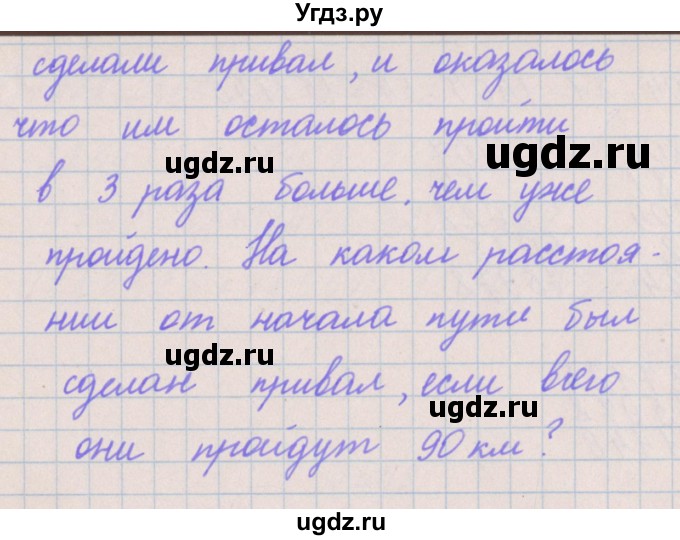 Угдз.ру
сделали привал, и оказалось
что им осталось пройти
ugdz.ru
ugdz.ru
в 3 раза больше, чем уже
пройдено. На каком расстоя-
нии от начала пути был
ugdz.ru
сделан привал, если всего
ugdz.ru
они пройдут 90 км?
ugdz.ru